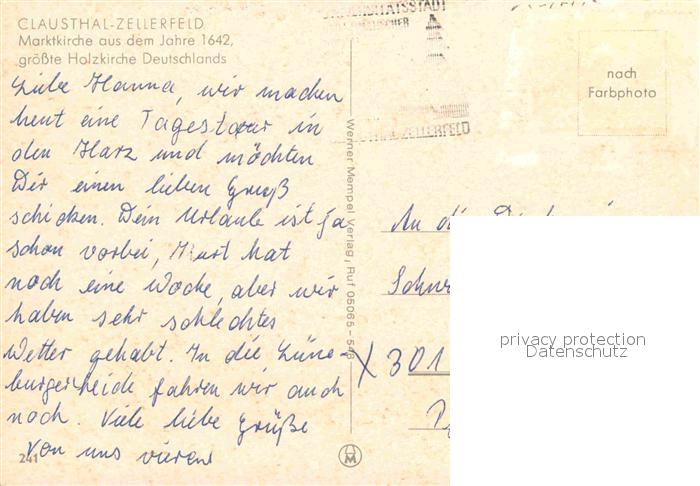 CLAUSTHAL-ZELLERFELD
Marktkirche aus dem Jahre 1642,
größte Holzkirche Deutschlands
Liebe Hanna, wir machen
heut eine Tagestour in
den Harz und möchten
Dir einen lieben Gruß
schicken. Dein Urlaub ist ja
schon vorbei, Kurt hat
noch eine Woche, aber wir
haben sehr schlechtes
Wetter gehabt. In die Lüne-
burgerheide fahren wir auch
noch. Viele liebe Grüße
von uns vieren
241
Werner Mempel Verlag, Ruf 05065-
UNIVERSITÄTSSTADT
CLAUSTHAL-ZELLERFELD
nach
Farbphoto
An die
301
privacy protection
Datenschutz